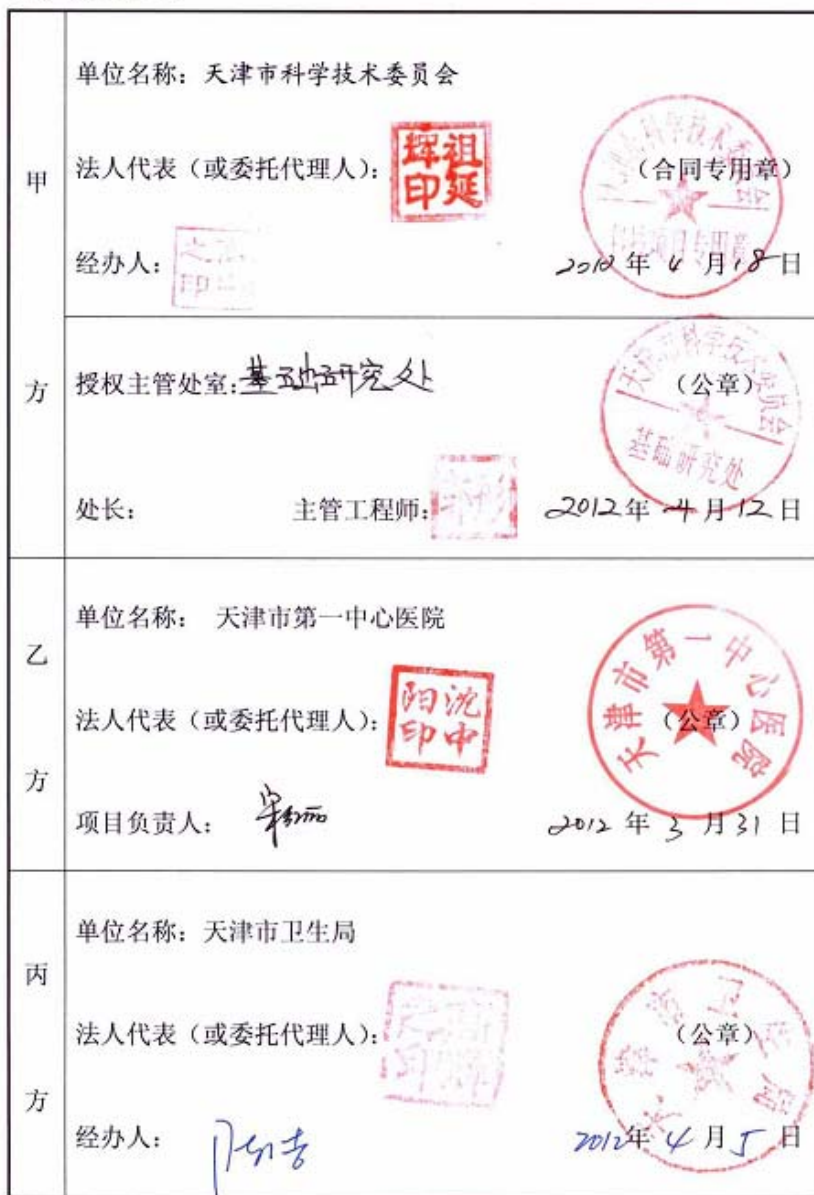 甲方
单位名称：天津市科学技术委员会
法人代表（或委托代理人）：
祖延
辉印
（合同专用章）
天津市科学技术委员会
科技项目专用章
经办人：
年 4 月 18 日
授权主管处室：基础研究处
（公章）
天津市科学技术委员会
基础研究处
处长： 主管工程师：
2012年 4 月 12 日
乙方
单位名称： 天津市第一中心医院
法人代表（或委托代理人）：
沈中
阳印
（公章）
天津市第一中心医院
项目负责人：
2012 年 3 月 31 日
丙方
单位名称：天津市卫生局
法人代表（或委托代理人）：
（公章）
天津市卫生局
经办人：
2012年 4 月 5 日